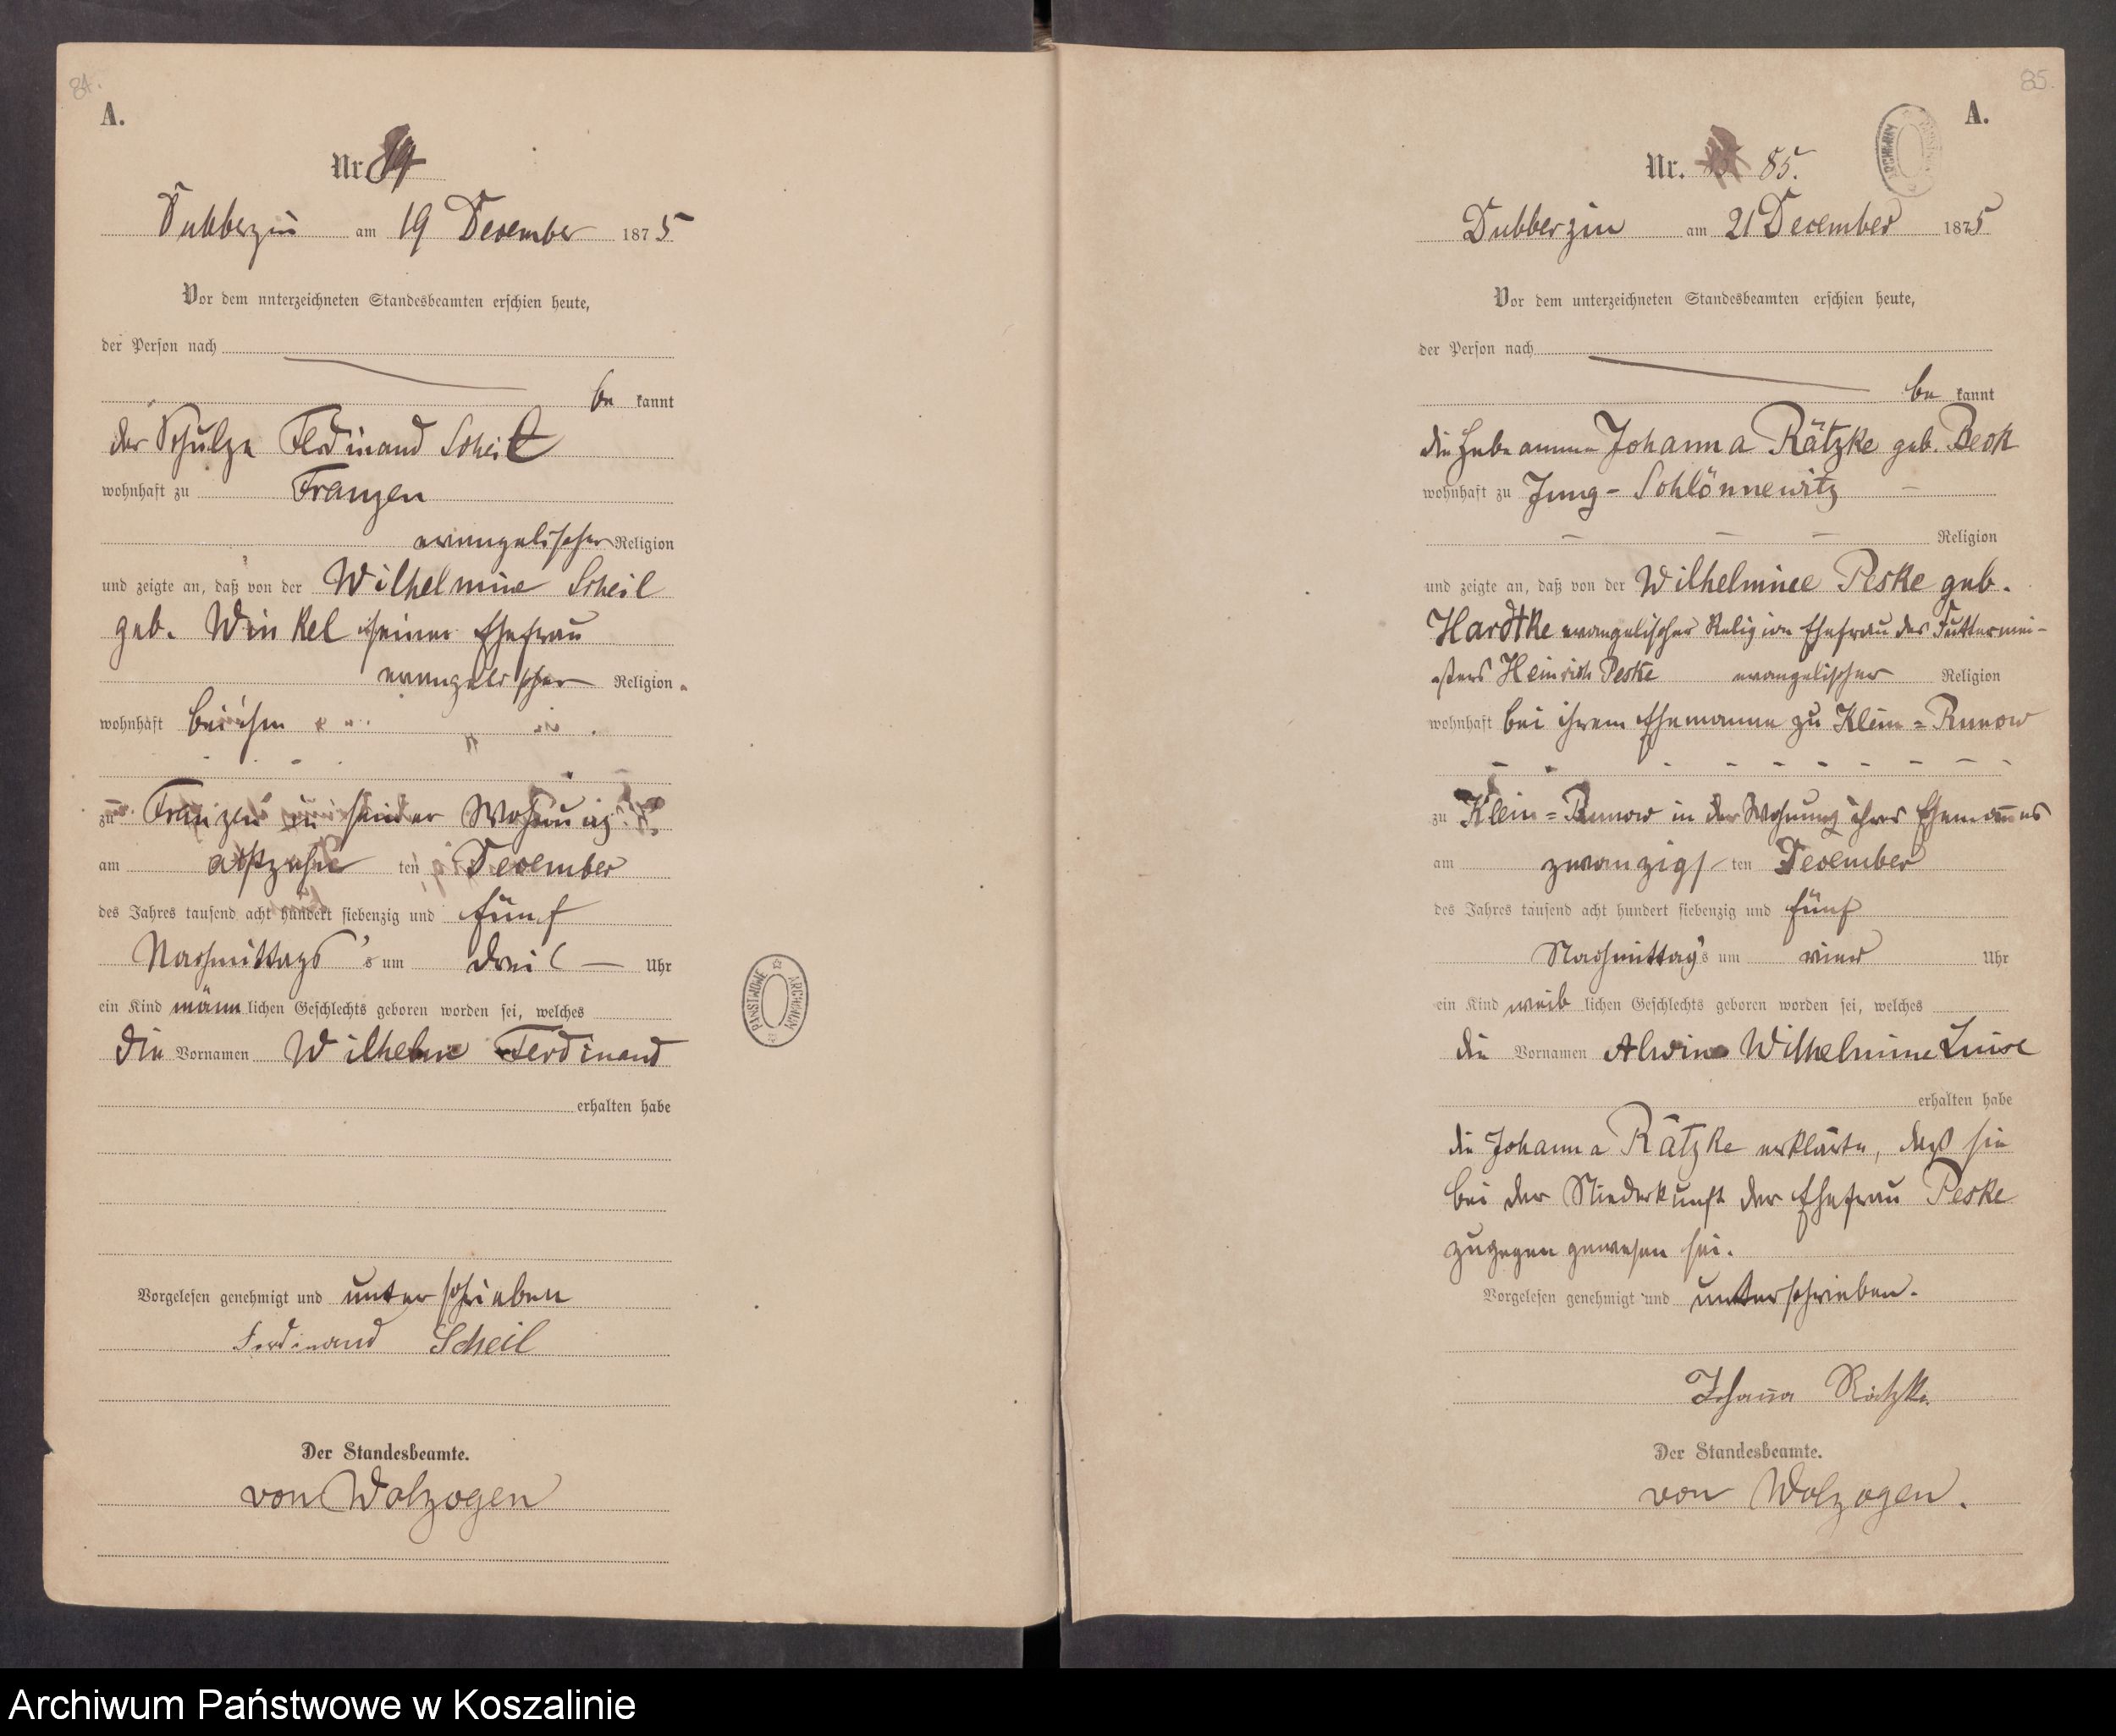 84.
A.
Nr. 84
Dubberzin am 19 December 1875
Vor dem nnterzeichneten Standesbeamten erschien heute,
der Person nach
be kannt
der Schulze Ferdinand Scheil
wohnhaft zu Franzen
evangelischer Religion
und zeigte an, daß von der Wilhelmine Scheil
geb. Winkel seiner Ehefrau
evangelischer Religion
wohnhaft bei ihm
zu Franzen in seiner Wohnung
am achtzehn ten December
des Jahres tausend acht hundert siebenzig und fünf
Nachmittags s um drei Uhr
ein Kind männ lichen Geschlechts geboren worden sei, welches
die Vornamen Wilhelm Ferdinand
erhalten habe
Vorgelesen genehmigt und unterschrieben
Ferdinand Scheil
Der Standesbeamte.
von Wolzogen
PAŃSTWOWE ARCHIWUM
85.
A.
ARCHIWUM
Nr. 85.
Dubberzin am 21 December 1875
Vor dem unterzeichneten Standesbeamten erschien heute,
der Person nach
be kannt
die Hebeamme Johanna Rätzke geb. Beck
wohnhaft zu Jung-Schlönnewitz
Religion
und zeigte an, daß von der Wilhelmine Peske geb.
Hardtke evangelischer Religion Ehefrau des Futtermei-
sters Heinrich Peske evangelischer Religion
wohnhaft bei ihrem Ehemanne zu Klein=Runow
zu Klein=Runow in der Wohnung ihres Ehemannes
am zwanzigs ten December
des Jahres tausend acht hundert siebenzig und fünf
Nachmittags um vier Uhr
ein Kind weib lichen Geschlechts geboren worden sei, welches
die Vornamen Alwine Wilhelmine Luise
erhalten habe
die Johanna Rätzke erklärte, daß sie
bei der Niederkunft der Ehefrau Peske
zugegen gewesen sei.
Vorgelesen genehmigt und unterschrieben.
Johanna Rätzke
Der Standesbeamte.
von Wolzogen.
Archiwum Państwowe w Koszalinie